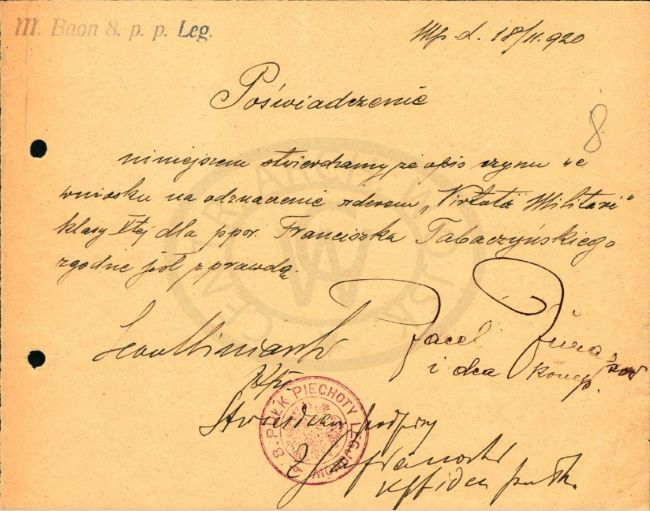 III. Baon 8. p. p. Leg.
Mp. d. 18/II. 920
Poświadczenie
8.
niniejszem stwierdzamy, że opis czynu we
wniosku na odznaczenie orderem „Virtuti Militari"
klasy Vtej dla ppor. Franciszka Tabaczyńskiego
zgodne jest z prawdą.
i dca komp.
8. PUŁK PIECHOTY LEGJONÓW
Stwierdzam podpisy